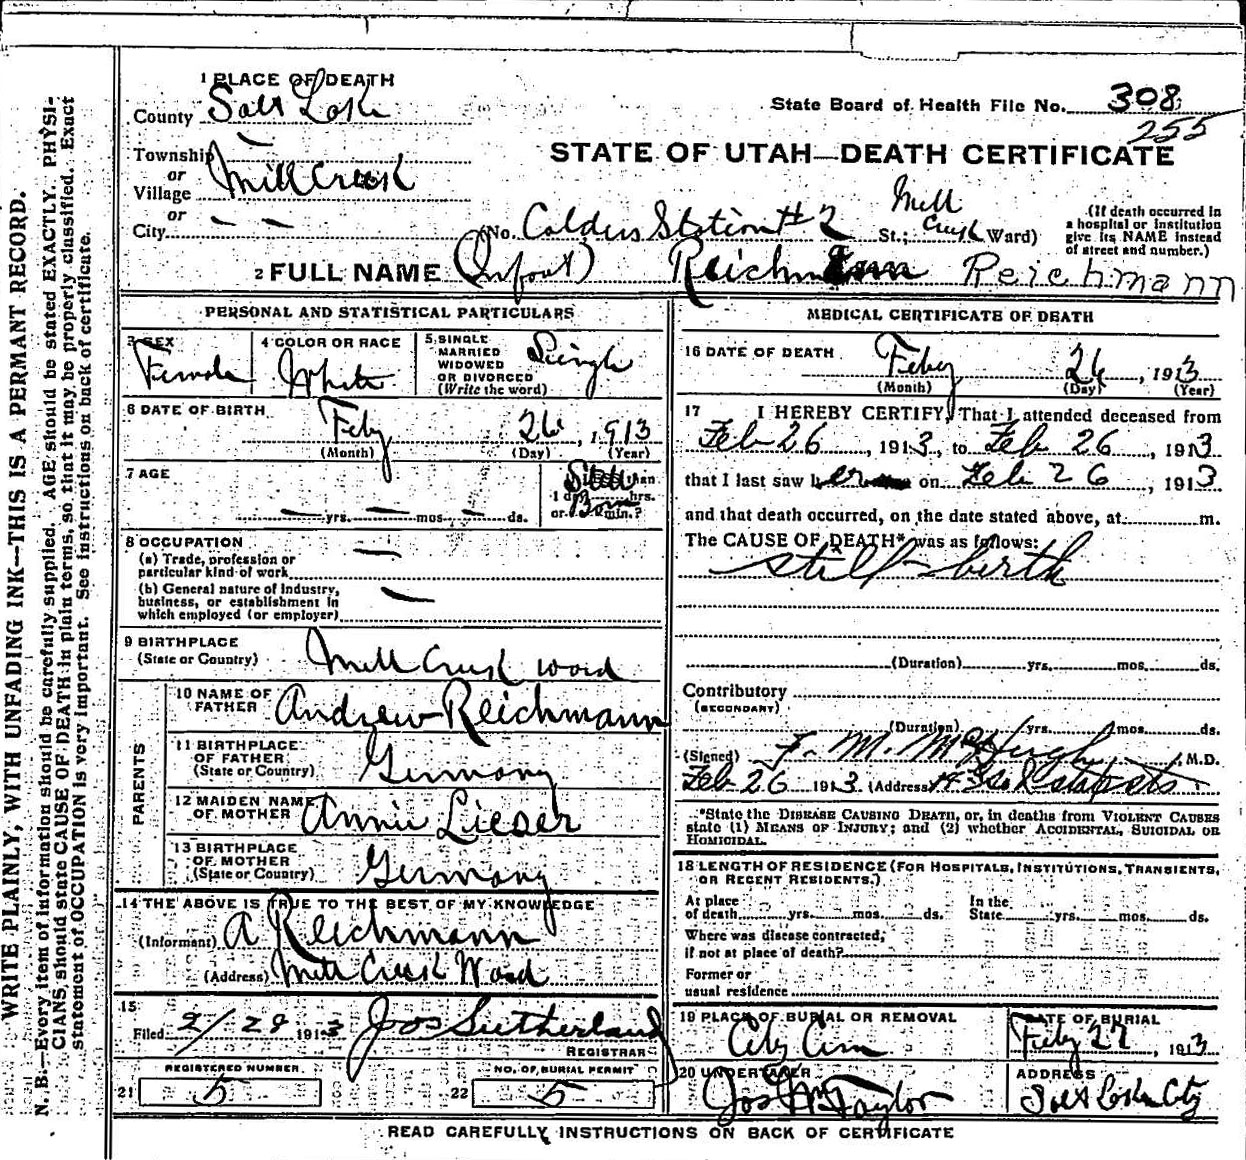 WRITE PLAINLY, WITH UNFADING INK—THIS IS A PERMANT RECORD.
N. B.—Every item of information should be carefully supplied. AGE should be stated EXACTLY. PHYSI-
CIANS should state CAUSE OF DEATH in plain terms, so that it may be properly classified. Exact
statement of OCCUPATION is very important. See instructions on back of certificate.
1 PLACE OF DEATH
County Salt Lake
State Board of Health File No. 308
255
Township —
or
Village Mill Creek
or
City — —
STATE OF UTAH—DEATH CERTIFICATE
(No. Calders Station #2 St.; Mill Creek Ward)
(If death occurred in
a hospital or institution
give its NAME instead
of street and number.)
2 FULL NAME (Infant) Reichmann Reichmann
PERSONAL AND STATISTICAL PARTICULARS
3 SEX
Female
4 COLOR OR RACE
White
5 SINGLE
MARRIED
WIDOWED
OR DIVORCED
(Write the word)
Single
6 DATE OF BIRTH
Feby 26, 1913
(Month) (Day) (Year)
7 AGE
— yrs. — mos. — ds.
than
1 day hrs.
or min.?
Still Born
8 OCCUPATION
(a) Trade, profession or
particular kind of work —
(b) General nature of industry,
business, or establishment in
which employed (or employer) —
9 BIRTHPLACE
(State or Country) Mill Creek Ward
PARENTS
10 NAME OF
FATHER Andrew Reichmann
11 BIRTHPLACE
OF FATHER
(State or Country) Germany
12 MAIDEN NAME
OF MOTHER Annie Lieser
13 BIRTHPLACE
OF MOTHER
(State or Country) Germany
14 THE ABOVE IS TRUE TO THE BEST OF MY KNOWLEDGE
(Informant) A Reichmann
(Address) Mill Creek Ward
15
Filed 2/28 1913 Jos Sutherland
REGISTRAR
REGISTERED NUMBER
21 5
NO. OF BURIAL PERMIT
22 5
MEDICAL CERTIFICATE OF DEATH
16 DATE OF DEATH
Feby 26, 1913
(Month) (Day) (Year)
17 I HEREBY CERTIFY, That I attended deceased from
Feb 26, 1913, to Feb 26, 1913
that I last saw her on Feb 26, 1913
and that death occurred, on the date stated above, at m.
The CAUSE OF DEATH* was as follows:
still-birth
(Duration) yrs. mos. ds.
Contributory
(SECONDARY)
(Duration) yrs. mos. ds.
(Signed) F. M. McHugh, M.D.
Feb 26 1913 (Address)
*State the DISEASE CAUSING DEATH, or, in deaths from VIOLENT CAUSES
state (1) MEANS OF INJURY; and (2) whether ACCIDENTAL, SUICIDAL OR
HOMICIDAL.
18 LENGTH OF RESIDENCE (FOR HOSPITALS, INSTITUTIONS, TRANSIENTS,
OR RECENT RESIDENTS.)
At place
of death yrs. mos. ds.
In the
State yrs. mos. ds.
Where was disease contracted,
if not at place of death?
Former or
usual residence
19 PLACE OF BURIAL OR REMOVAL
City Cem
DATE OF BURIAL
Feby 27, 1913
20 UNDERTAKER
Jos Wm Taylor
ADDRESS
Salt Lake City
READ CAREFULLY INSTRUCTIONS ON BACK OF CERTIFICATE